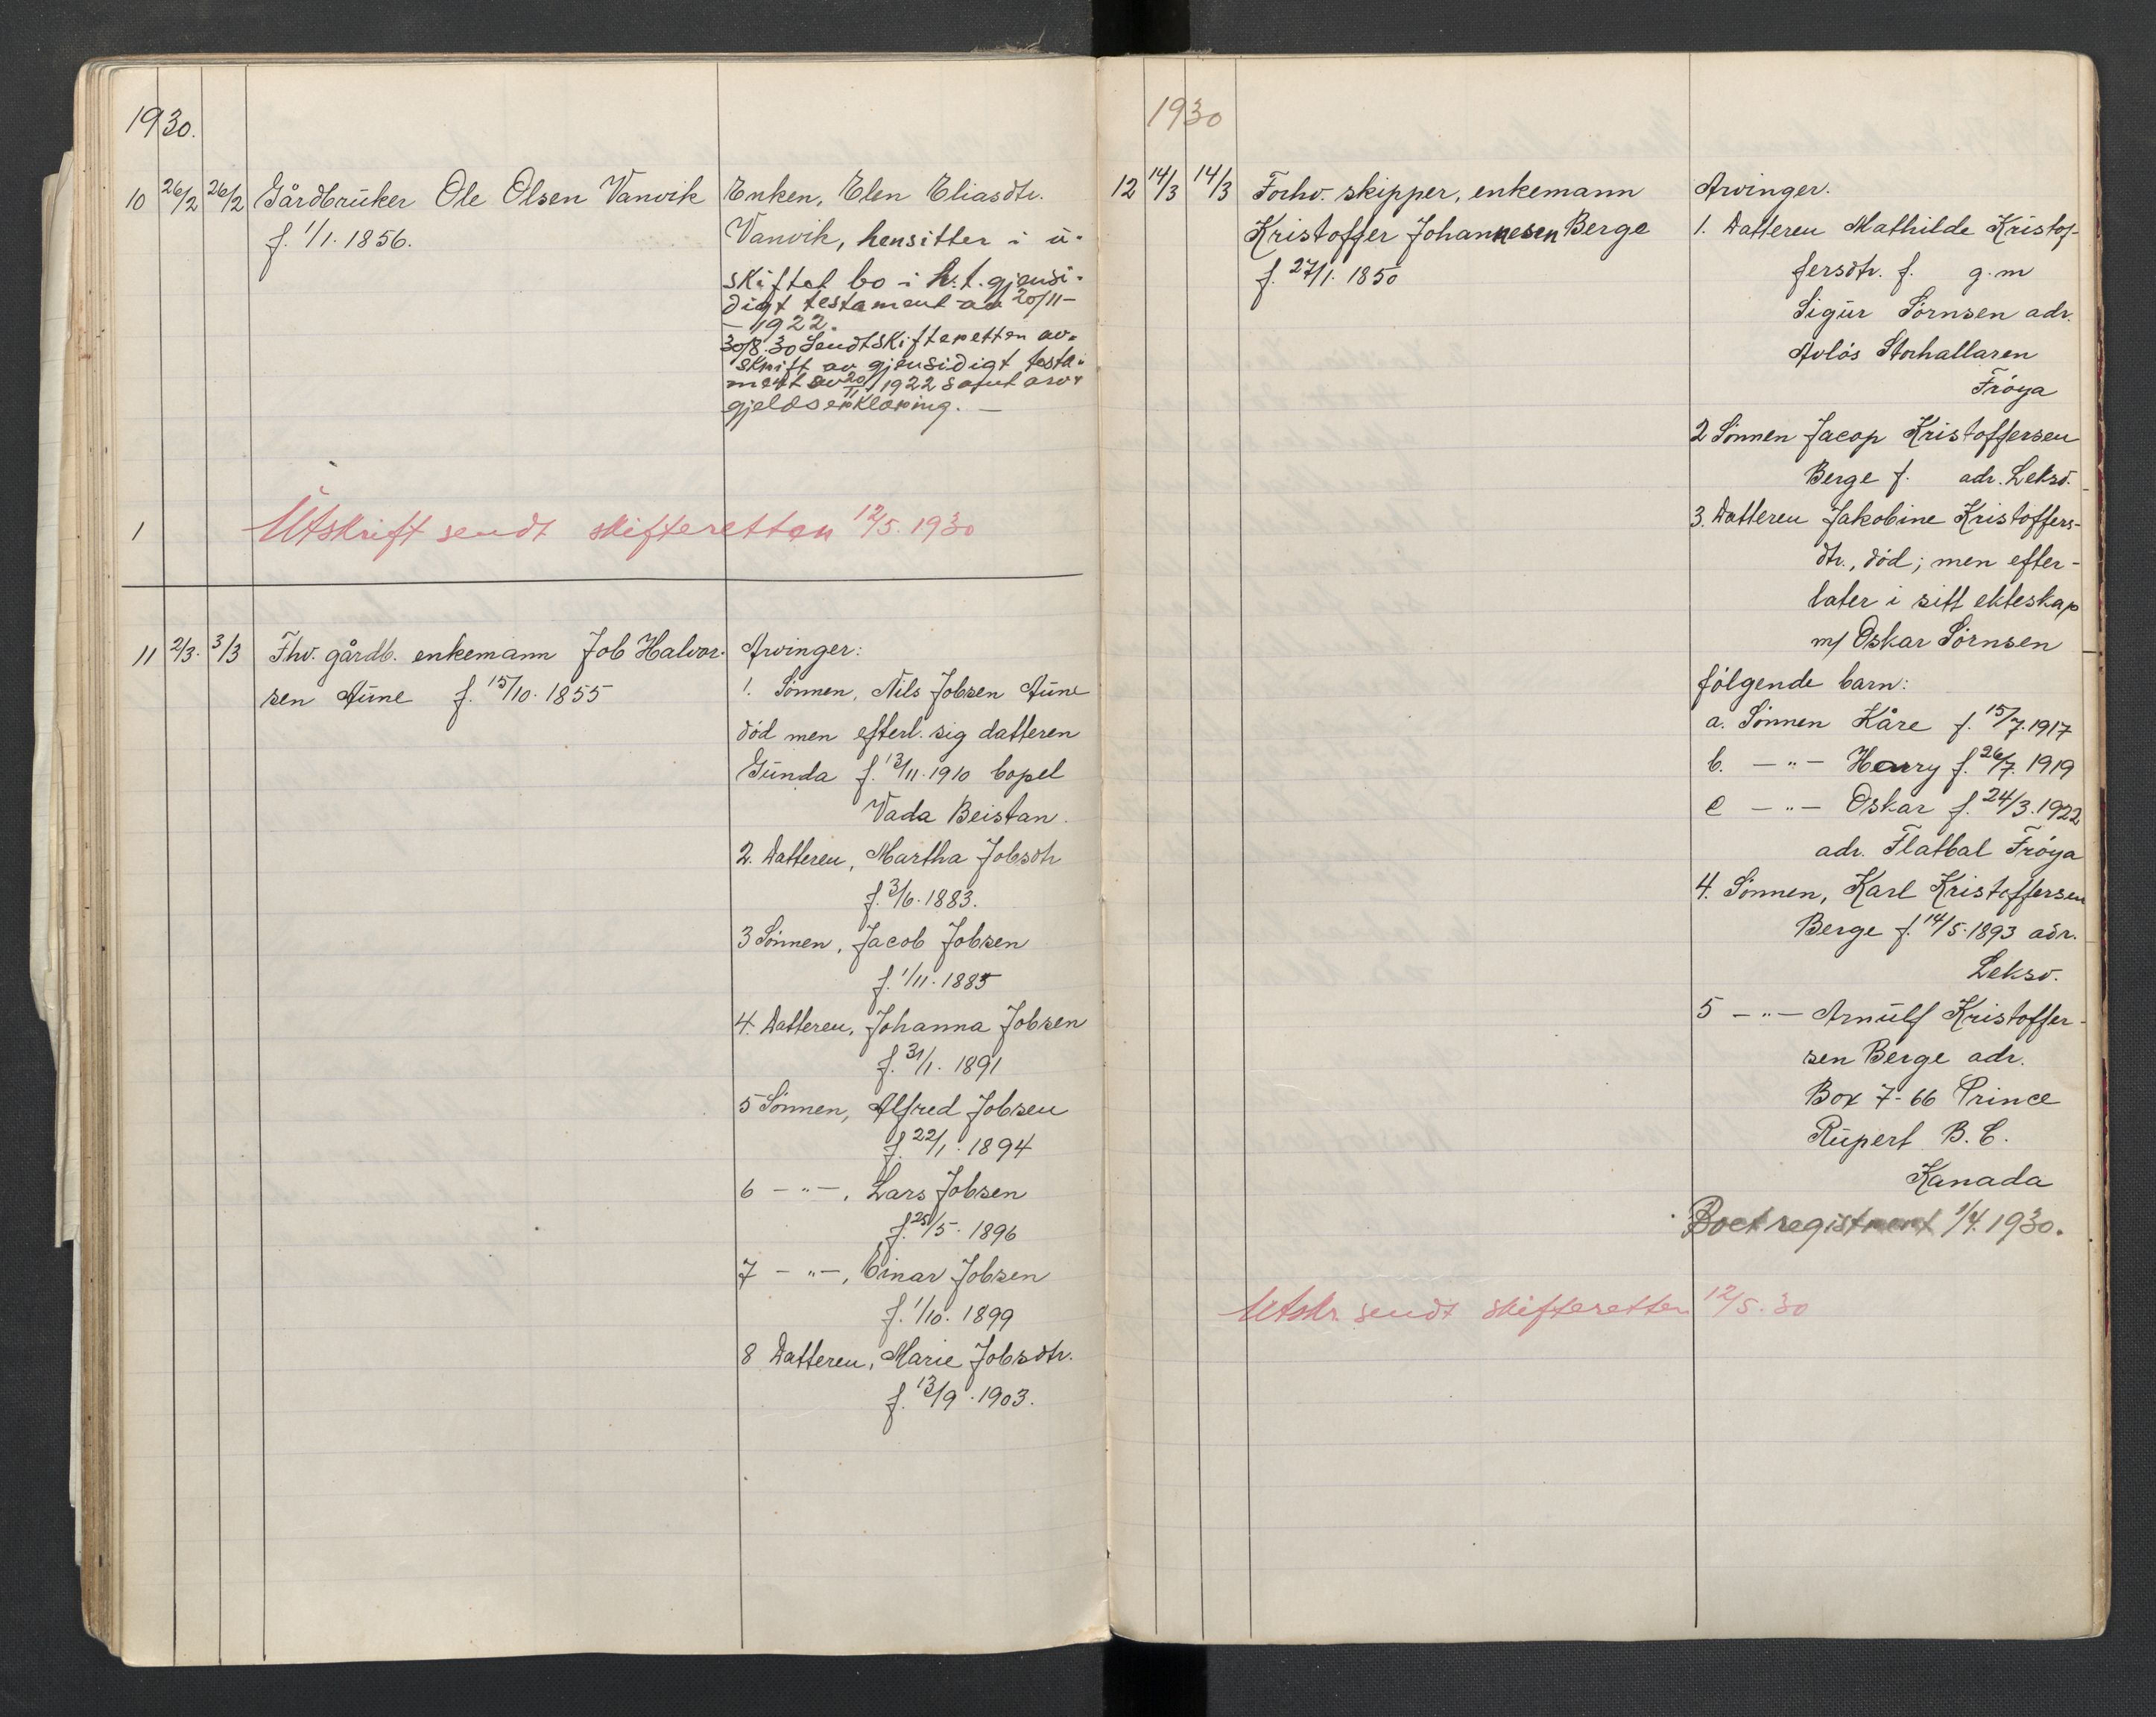 1930.
10 26/2 26/2 Gårdbruker Ole Olsen Vanvik
f. 1/1. 1856.
Enken, Elen Eliasdtr.
Vanvik, hensitter i u-
skiftet bo i h.t. gjensi-
digt testament av 20/11-
- 1922.
30/8.30 Sendt skifteretten av-
skrift av gjensidigt testa-
ment av 20/11 1922 samt arv-
gjeldserklæring. —
1 Utskrift sendt skifteretten 12/5. 1930
11 2/3. 3/3 Fhv. gårdb. enkemann Job Halvor-
sen Aune f. 15/10. 1855
Arvinger:
1. Sönnen, Nils Jobsen Aune
död men efterl. sig datteren
Gunda f. 13/11. 1910 bopel
Vada Beistan.
2. Datteren, Martha Jobsdtr
f. 3/6. 1883.
3 Sönnen, Jacob Jobsen
f. 1/11. 1885
4. Datteren, Johanna Jobsen
f. 31/1. 1891
5 Sönnen, Alfred Jobsen
f. 22/1. 1894
6 — " —, Lars Jobsen
f. 25/5. 1896
7 — " —, Einar Jobsen
f. 1/10. 1899
8 Datteren, Marie Jobsdtr.
f. 13/9. 1903.
1930
12 14/3 14/3 Forhv. skipper, enkemann
Kristoffer Johannesen Berge
f. 27/1. 1850
Arvinger.
1. Datteren Mathilde Kristof-
fersdtr. f. g.m
Sigur Sörnsen adr.
Avlös Storhallaren
Fröya
2 Sönnen Jacop Kristoffersen
Berge f. adr. Leksv.
3. Datteren Jakobine Kristoffers-
dtr., död; men efter-
later i sitt ekteskap
m/ Oskar Sörnsen
fölgende barn:
a. Sönnen Kåre f. 15/7. 1917
b. — " — Harry f. 26/7. 1919
c — " — Oskar f. 24/3. 1922
adr. Flatval Fröya
4. Sönnen, Karl Kristoffersen
Berge f. 14/5. 1893 adr.
Leksv.
5 — " — Arnulf Kristoffer-
sen Berge adr.
Box 7-66 Prince
Rupert B.C.
Kanada
Boet registrert 1/4. 1930.
Utskr. sendt skifteretten 12/5. 30